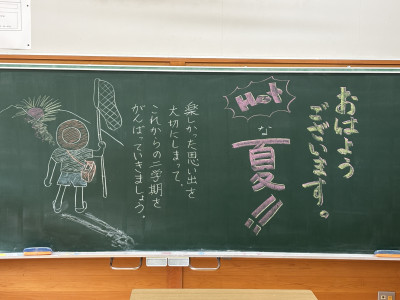 おはよう
ございます。
Hot
な
夏!!
楽しかった思い出を
大切にしまって、
これからの二学期を
がんばっていきましょう。